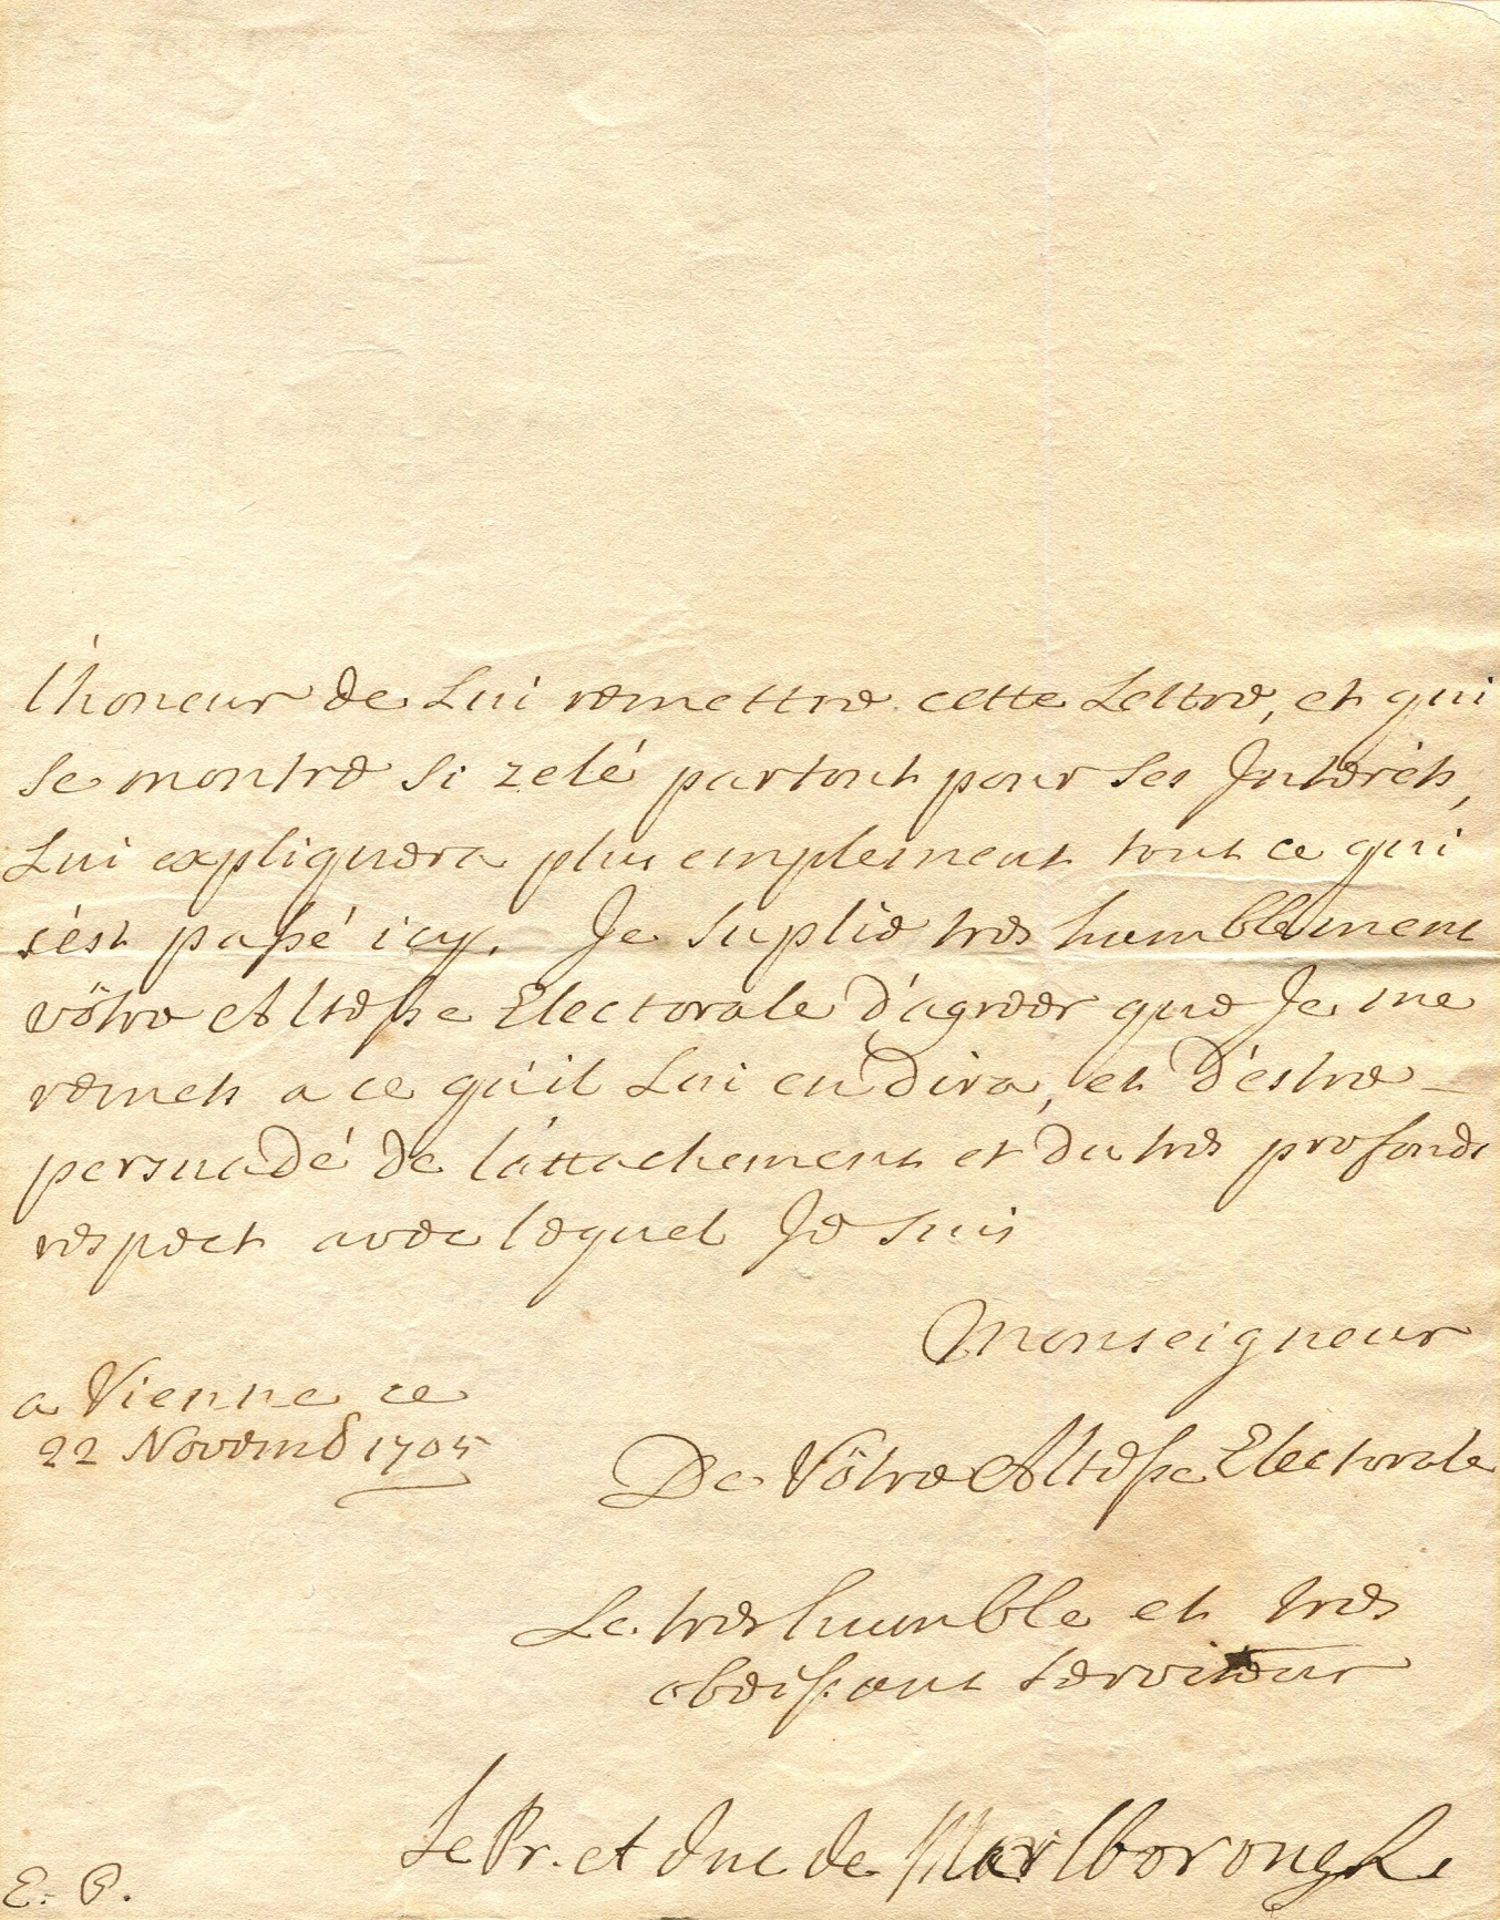 l'honeur de Lui remettre cette Lettre, et qui
se montre si zelé partout pour ses Interêts,
Lui expliquera plus emplement tout ce qui
s'est passé icy. Je suplie tres humblement
vôtre Altesse Electorale d'agreer que Je me
remets a ce qu'il Lui en dira, et D'estre
persuadé de l'attachement et du tres profond
respect avec lequel Je suis
Monseigneur
a Vienne ce
22 Novemb 1705
De Vôtre Altesse Electorale
Le tres humble et tres
obeissant serviteur
Le Pr. et duc de Marlborough
E. P.